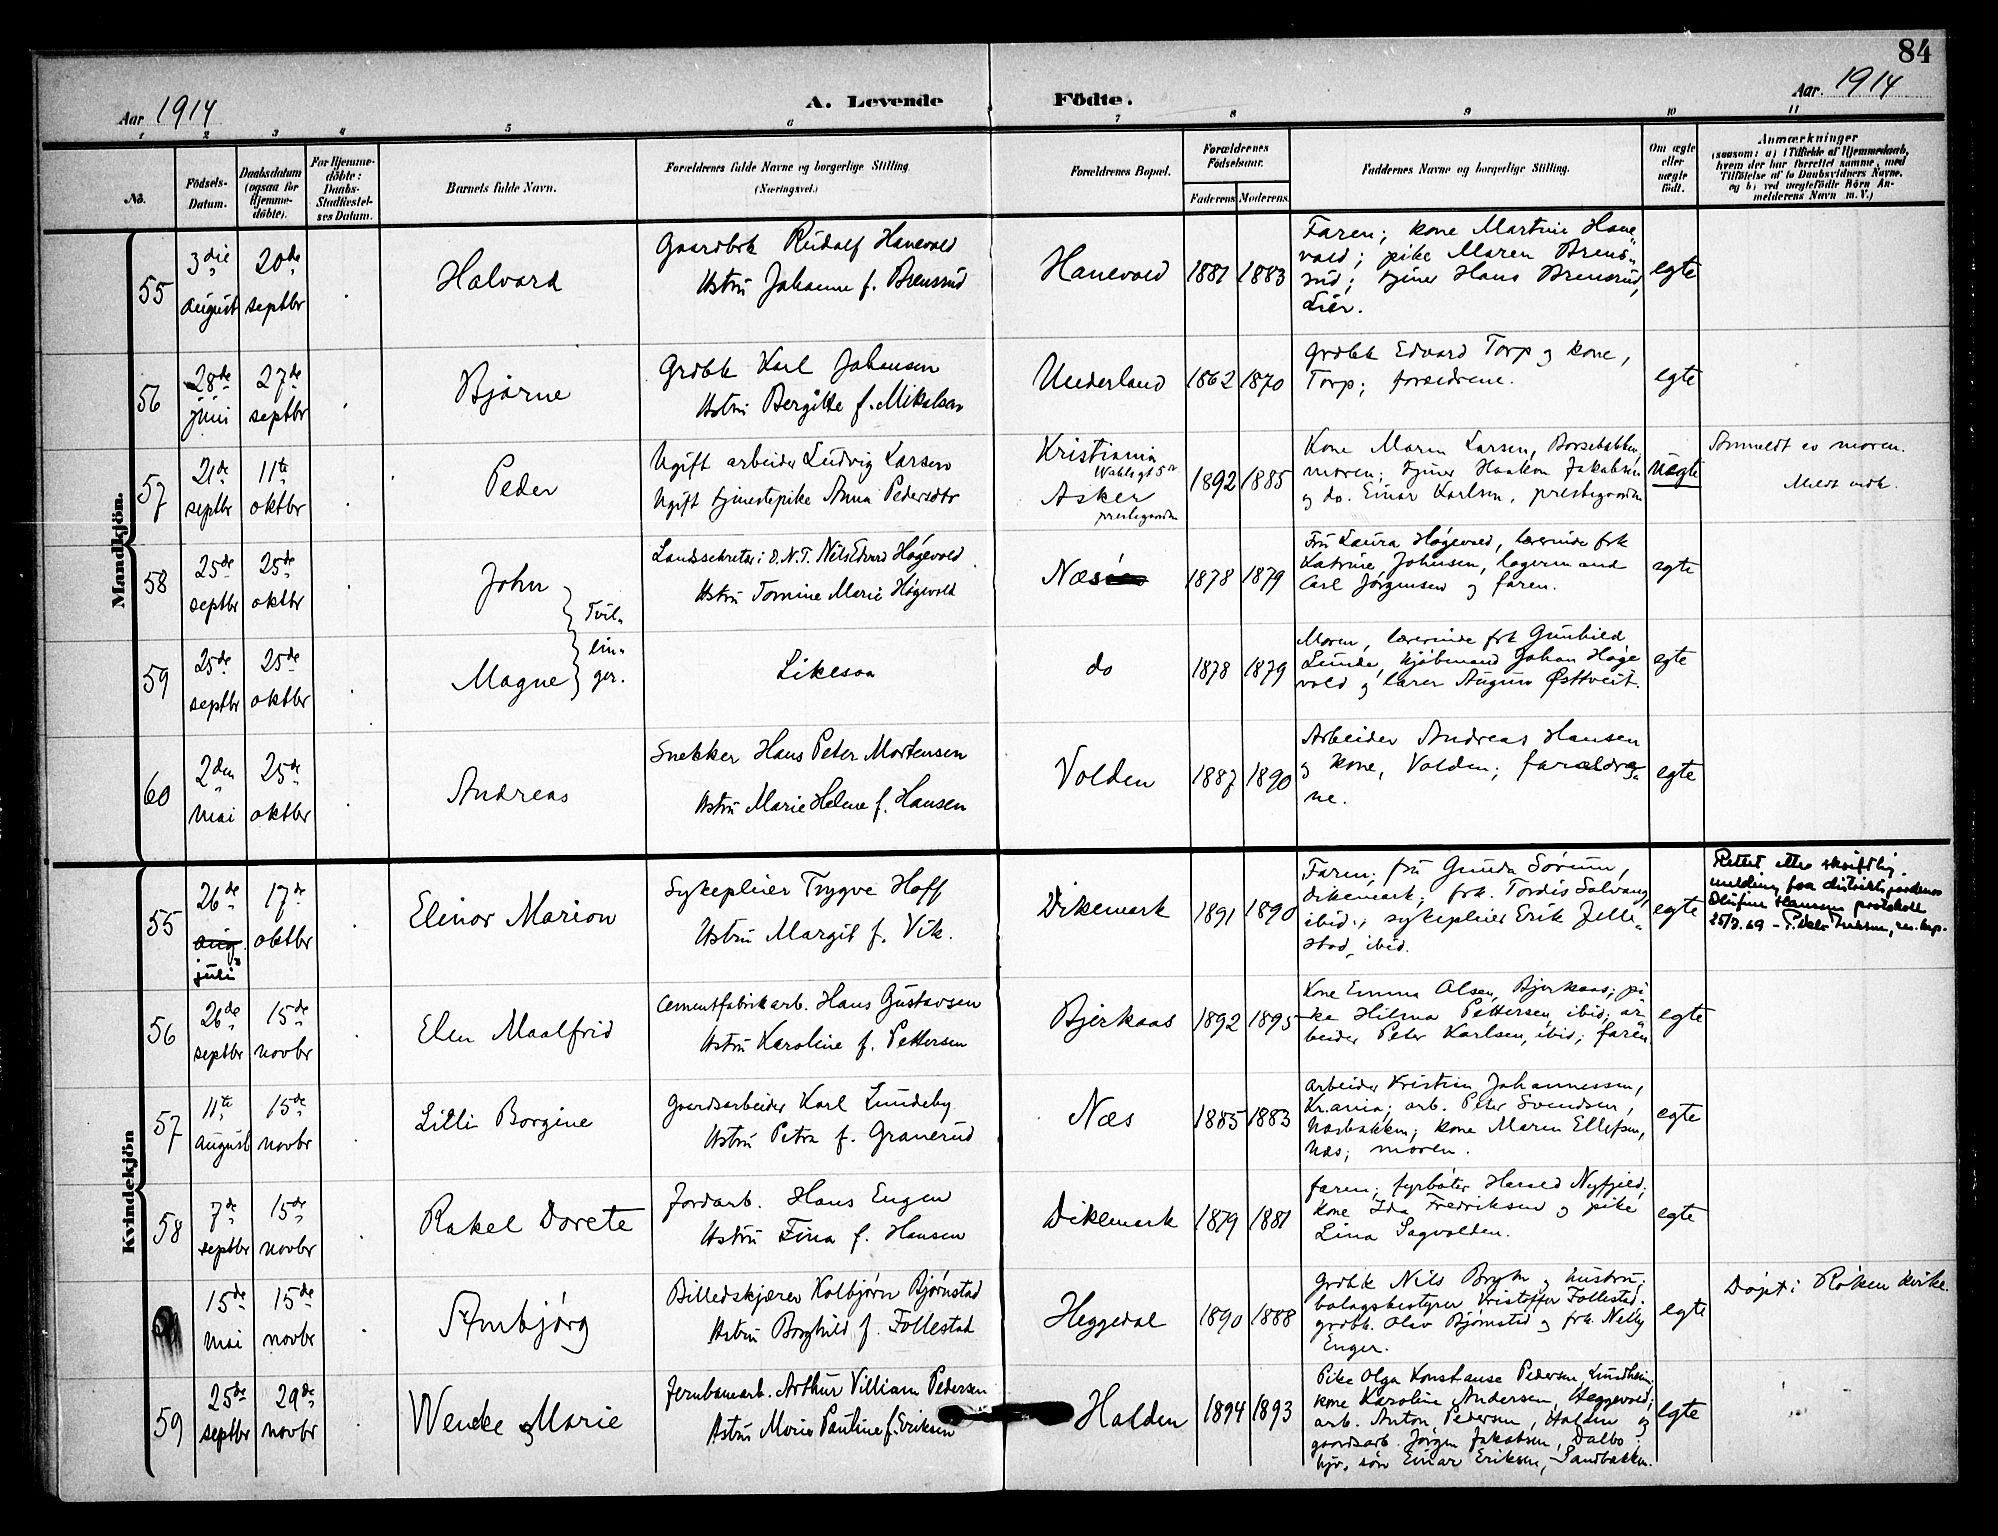 84
Aar 1914
A. Levende
Födte.
Aar. 1914
1 2 3 4 5 6 7 8 9 10 11
No.
Födsels-
Datum.
Daabsdatum
(ogsaa for
Hjemme-
döbte).
For Hjemme-
döbte:
Daabs-
Stadfæstel-
ses Datum.
Barnets fulde Navn.
Forældrenes fulde Navne og borgerlige Stilling
(Næringsvei.)
Forældrenes Bopæl.
Forældrenes
Födselsaar.
Faderens
Moderens.
Faddernes Navne og borgerlige Stilling.
Om ægte
eller
uægte
födt.
Anmærkninger
(saasom: a) i Tilfælde af Hjemmedaab,
hvem der har forrettet samme, med
Tilföielse af to Daabsvidners Navne.
og b) ved uægtefödte Börn An-
melderens Navn m. V.)
Mandkjön.
55
3die
august
20de
septbr
Halvard
Gaardbrk Rudolf Hanevold
Hstru Johanne f. Brensrud
Hanevold
1881
1883
Faren; kone Martine Hane-
vold; pike Maren Brens-
rud; tjener Hans Brensrud,
Lier.
egte
56
28de
juni
27de
septbr
Bjarne
Grdbk Karl Johansen
Hstru Bergitte f. Mikalsen
Underland
1862
1870
Grdbk Edvard Torp og kone,
Torp; forældrene.
egte
57
21de
septbr
11te
oktbr
Peder
Ugift arbeider Ludvig Larsen
Ugift tjenestepike Anna Pedersdtr
Kristiania
Asker
prestegaarden
1892
1885
Kone Maren Larsen, Borsebakken,
moren; tjener Haakon Jakobsen
og do. Einar Karlsen, prestegaarden
uegte
Anmeldt av moren.
Meldt indb.
58
25de
septbr
25de
oktbr
John
Tvil-
lin-
ger.
Landssekretær i D.N.T. Nils Edvard Høgevold
Hstru Tomine Marie Høgevold
Næs
1878
1879
Fru Laura Høgevold, lærerinde frk
Katrine Johnsen, lagermand
Carl Jørgensen og faren.
egte
59
25de
septbr
25de
oktbr
Magne
Likesaa
do
1878
1879
Moren, lærerinde frk Gunhild
Lunde, kjøbmand Johan Høge
vold og lærer Magnus Østtveit.
egte
60
2den
mai
25de
oktbr
Andreas
Snekker Hans Peter Mortensen
Hstru Marie Helene f. Hansen
Volden
1887
1890
Arbeider Andreas Hansen
og kone, Volden; forældre-
ne.
egte
Kvindekjön
55
26de
aug.
juli
17de
oktbr
Elinor Marion
Sykepleier Trygve Hoff
Hstru Margit f. Vik.
Dikemark
1891
1890
Faren; fru Gunda Sørum,
Dikemark; frk. Tordis Solvang,
ibid.; sykepleier Erik Jelle-
stad, ibid.
egte
Rettet etter skriftlig
melding fra distriktsjordmor
protokoll
25/7.69 -
56
26de
septbr
15de
novbr
Elen Maalfrid
Cementfabrikarb. Hans Gustavsen
Hstru Karoline f. Pettersen
Bjerkaas
1892
1895
Kone Emma Olsen, Bjerkaas; pi-
ke Hilma Pettersen, ibid; ar
beider Peter Karlsen, ibid; faren
egte
57
11te
august
15de
novbr
Lilli Borgine
Gaardsarbeider Karl Lundeby
Hstru Petra f. Granerud
Næs
1885
1883
Arbeider Kristian Johannessen,
Kr.ania; arb. Peter Svendsen,
Næsbakken; kone Maren Ellefsen,
Næs; moren.
egte
58
7de
septbr
15de
novbr
Rakel Dorete
Jordarb. Hans Engen
Hstru Fina f. Hansen
Dikemark
1879
1881
faren; fyrbøter Harald Nyfjeld;
kone Ida Fredriksen og pike
Lina Sagvolden.
egte
15de
mai
15de
novbr
Arnbjørg
Billedskjærer Kolbjørn Bjørnstad
Hstru Borghild f. Follestad
Heggedal
1890
1888
Grdbk Nils Bryhn og hustru;
bolagsbestyrer Kristoffer Follestad;
grdbk. Olav Bjørnstad og frk. Nelly
Enger.
egte
Døpt i Røken kirke.
59
25de
septbr
29de
novbr
Wencke Marie
Jernbanearb. Arthur Villiam Pedersen
Hstru Marie Pauline f. Eriksen
Halden
1894
1893
Pike Olga Konstanse Pedersen, Lundheim;
kone Karoline Andersen, Heggevold;
arb. Anton Pedersen, Halden og
gaardsarb. Jørgen Jakobsen, Dalbo
hjv. søn Einar Eriksen, Sandbakken.
egte